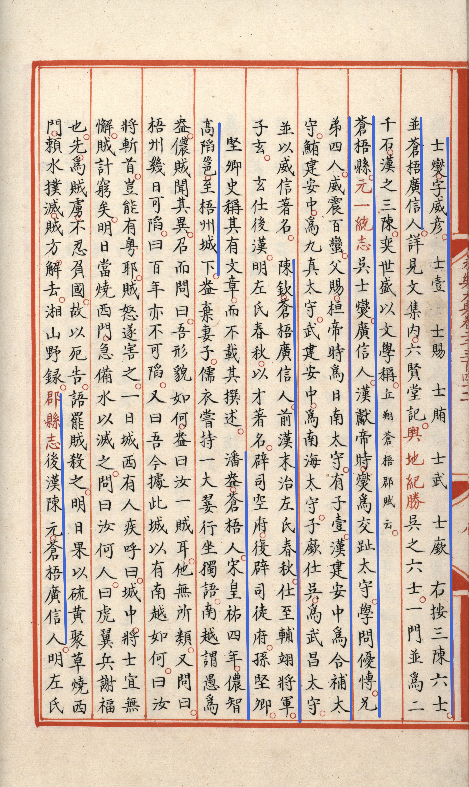 士燮字威彦 士壹 士賜 士䵋 士武 士廞 右按三陳六士
並蒼梧廣信人詳見文集内六賢堂記輿地紀勝吳之六士一門並爲二
千石漢之三陳奕世盛以文學稱丘翔蒼梧郡賦云
蒼梧縣元一統志吳士燮廣信人漢獻帝時燮爲交趾太守學問優博兄
弟四人威震百蠻父賜桓帝時爲日南太守有子壹漢建安中爲合補太
守䵋建安中爲九真太守武建安中爲南海太守子廞仕吳爲武昌太守
並以威信著名 陳欽蒼梧廣信人前漢末治左氏春秋仕至輔翊將軍
子玄 玄仕後漢明左氏春秋以才著名辟司空府後辟司徒府孫堅卿
堅卿史稱其有文章而不載其撰述 潘盎蒼梧人宋皇祐四年儂智
高陷邕至梧州城下盎棄妻子儒衣嘗持一大翣行坐獨語南越謂愚爲
盎儂賊聞其異召而問曰吾形貌如何盎曰汝一賊耳他無所類又問曰
梧州幾日可陷曰百年亦不可陷又曰吾今據此城以有南越如何曰汝
將斬首豈能有粤耶賊怒遂害之一日城西有人疾呼曰城中將士宜無
懈賊計窮矣明日當燒西門急備水以滅之問曰汝何人曰虎翼兵謝福
也先爲賊虜不忍負國故以死告語罷賊殺之明日果以硫黄聚草燒西
門賴水撲滅賊方解去湘山野録郡縣志後漢陳元蒼梧廣信人明左氏